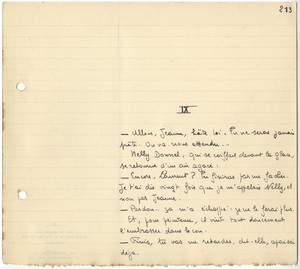 213
IX
— Allons, Jeanne, hâte-toi. Tu ne seras jamais
prête. On va nous attendre...
Nelly Donnel, qui se coiffait devant la glace,
se retourna d'un air agacé :
— Encore, Laurent ? Tu finiras par me fâcher.
Je t'ai dit vingt fois que je m'appelais Nelly, et
non pas Jeanne.
— Pardon.. ça m'a échappé : je ne le ferai plus.
Et, pour pénitence, il vint tout doucement
l'embrasser dans le cou.
— Finis, tu vas me retarder, dit-elle, apaisée
déjà.